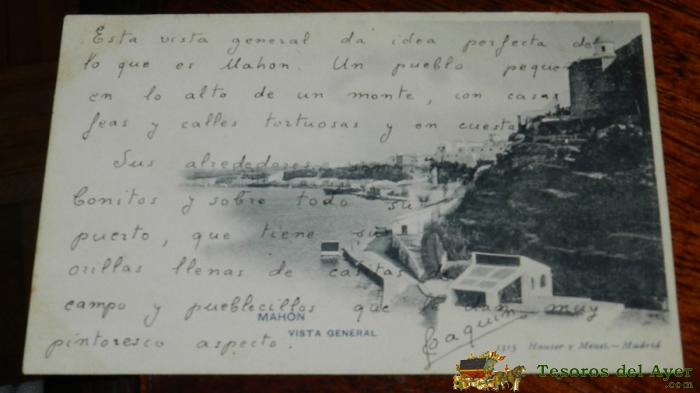 Esta vista general da idea perfecta de
lo que es Mahon. Un pueblo peque
en lo alto de un monte, con casas
feas y calles tortuosas y en cuesta
Sus alrededores
bonitos y sobre todo su
puerto, que tiene su
orillas llenas de casitas de
campo y pueblecillos que le dan muy
pintoresco aspecto.
Joaquin
MAHÓN
VISTA GENERAL
1315 Hauser y Menet.—Madrid
Tesoros del Ayer
.com